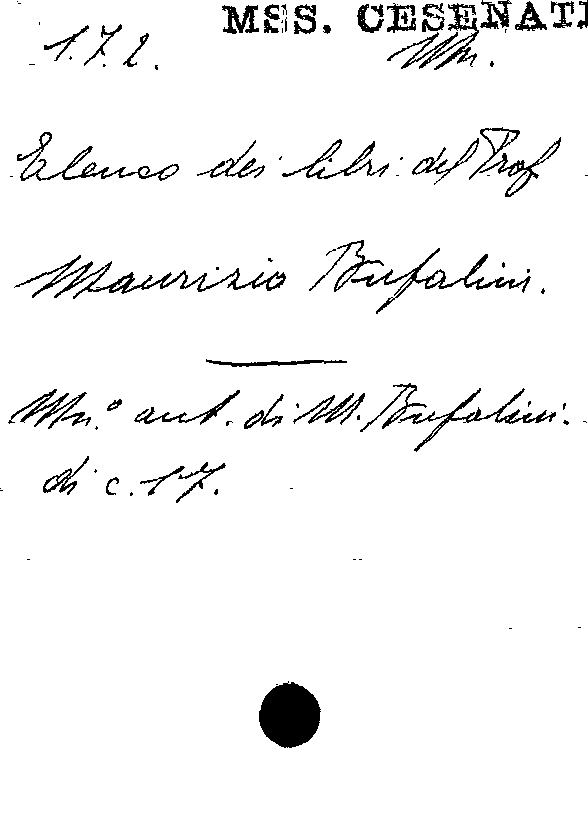 MSS. CESENATI
1.7.2. Mn.
Elenco dei libri del Prof
Maurizio Bufalini.
Mn.° aut. di M. Bufalini.
di c. 17.